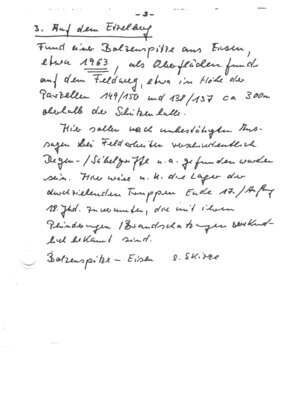 - 3 -
3. Auf dem Eizelberg
Fund einer Bolzenspitze aus Eisen,
etwa 1963, als Oberflächenfund
auf dem Feldweg, etwa in Höhe der
Parzellen 149/150 und 138/137 ca 300m
oberhalb der Schützenhalle.
Hier sollen nach unbestätigten Aus-
sagen bei Feldarbeiten verschiedentlich
Degen-/Säbelgriffe u.a. gefunden worden
sein. Hier wäre u.U. die Lager der
durchziehenden Truppen Ende 17./Anfg
18. Jhd. zu vermuten, die mit ihren
Plünderungen/Brandschatzungen
bekannt sind.
Bolzenspitze - Eisen s. Skizze